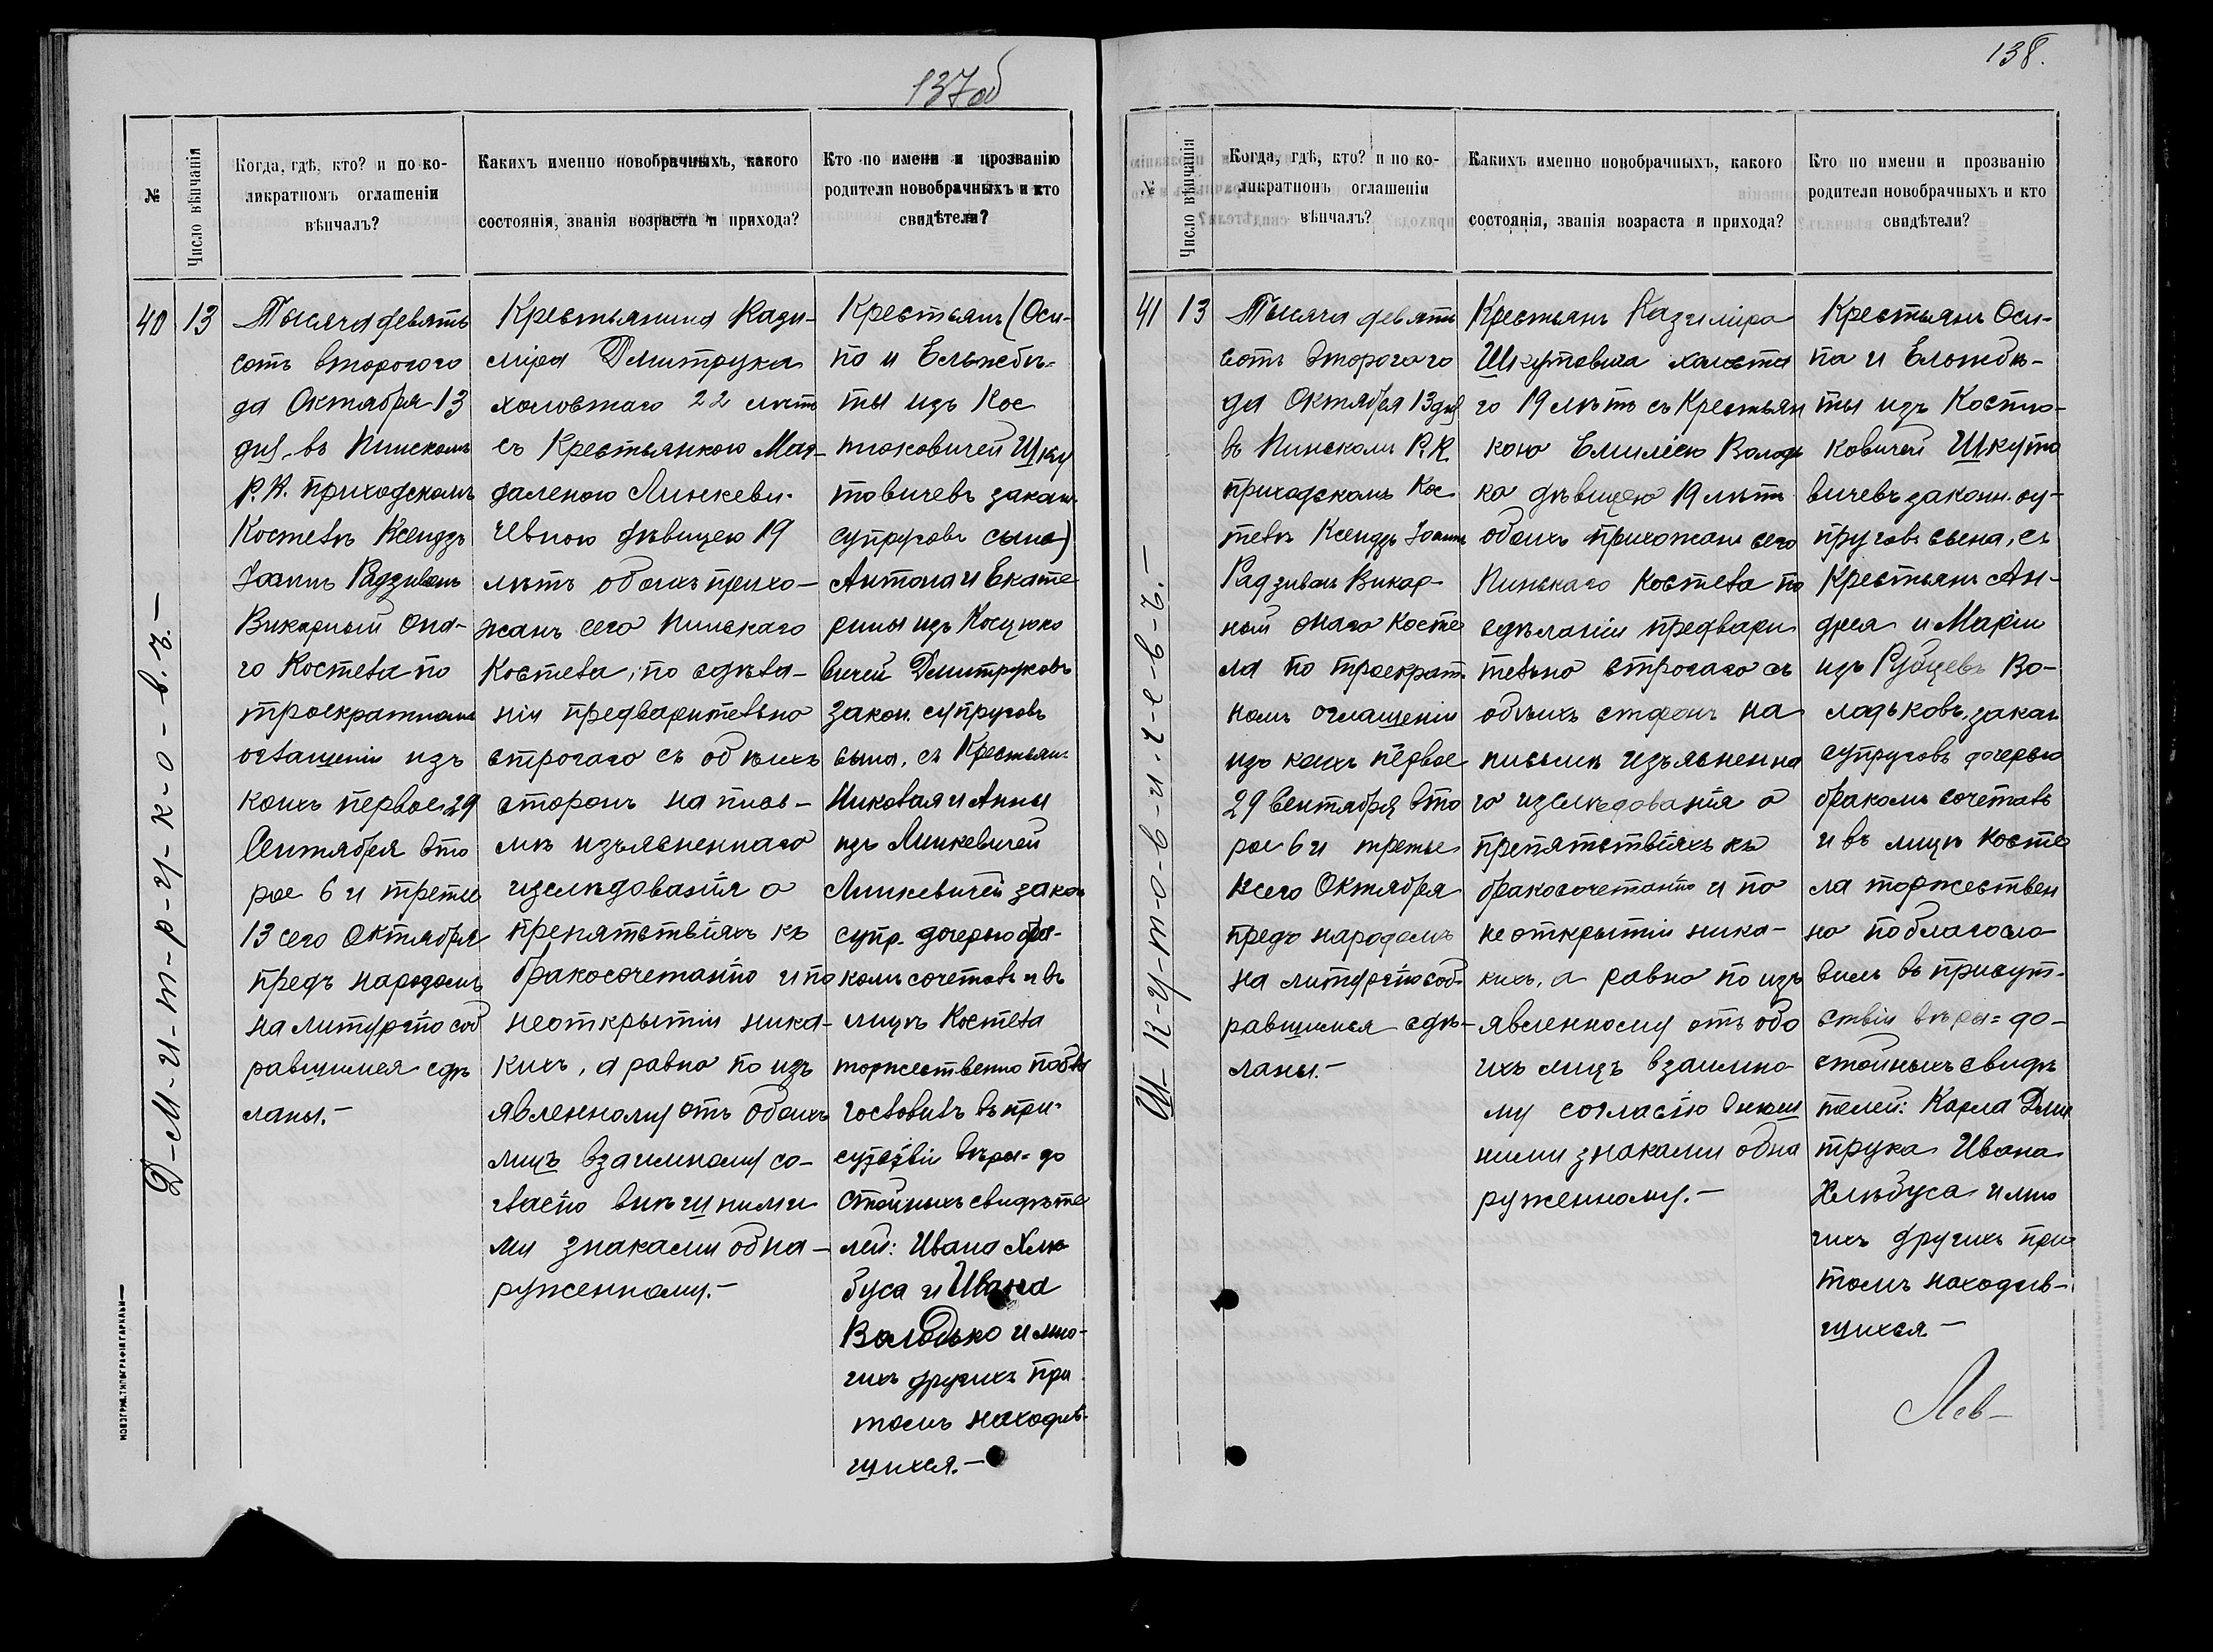 137об
№
Число вѣнчанія
Когда, гдѣ, кто? и по ко-
ликратномъ оглашеніи
вѣнчалъ?
Какихъ именно новобрачныхъ, какого
состоянія, званія возраста и прихода?
Кто по имени и прозванію
родители новобрачныхъ и кто
свидѣтели?
40
13
Д-м-и-т-р-у-к-о-в-ъ.-
Тысяча девять
сотъ второго го
да Октября 13
дня въ Пинскомъ
Р. К. приходскомъ
Костелѣ Ксендзъ
Іоаннъ Радзиванъ
Викарный она-
го Костела по
троекратномъ
оглашеніи изъ
коихъ первое 29
Сентября вто
рое 6 и третье
13 сего Октября
предъ народомъ
на литургію соб
равшимся сдѣ
ланы.-
Крестьянина Кази-
міра Дмитрука
холостаго 22 лѣтъ
съ Крестьянкою Маг-
даленою Линкеви-
чевною дѣвицею 19
лѣтъ обоихъ прихо-
жанъ сего Пинскаго
Костела; по сдѣла-
ніи предварительно
строгаго съ обѣихъ
сторонъ на пись-
мѣ изъясненнаго
изслѣдованія о
препятствіяхъ къ
бракосочетанію и по
неоткрытіи ника-
кихъ, а равно по изъ
явленному отъ обоихъ
лицъ взаимному со-
гласію внѣшними
ми знаками обна-
руженному.-
Крестьянъ (Оси-
па и Ельжбѣ-
ты изъ Кос
тюковичей Шку
товичевъ закон.
супруговъ сына)
Антона и Екате
рины изъ Косцюко
вичей Дмитруковъ
закон. супруговъ
сына, съ Крестьян.
Николая и Анны
изъ Линкевичей
Линкевичей закон
супр. дочерью бра-
комъ сочеталъ и въ
лицѣ Костела
торжественно побла
гословилъ въ при-
сутствіи вѣры=до
стойныхъ свидѣте
лей: Ивана Хлѣ
буса и Ивана
Володько и мно-
гихъ другихъ при
томъ находив-
шихся.-
НОВОГРУД. ТИПОГРАФІЯ ГАРКАВИ
138.
№
Число вѣнчанія
Когда, гдѣ, кто? и по ко-
ликратномъ оглашеніи
вѣнчалъ?
Какихъ именно новобрачныхъ, какого
состоянія, званія возраста и прихода?
Кто по имени и прозванію
родители новобрачныхъ и кто
свидѣтели?
41
13
Ш-к-у-т-о-в-и-ч-е-в-ъ.-
Тысяча девять
сотъ второго го
да Октября 13 дня
въ Пинскомъ Р. К.
приходскомъ Кос
телѣ Ксендзъ Іоаннъ
Радзиванъ Викар-
ный онаго Косте
ла по троекрат-
номъ оглашеніи
изъ коихъ первое
29 Сентября вто
рое 6 и третье
13 сего Октября
предъ народомъ
на литургію соб-
равшимся сдѣ-
ланы.-
Крестьянъ Казиміра
Шкутовича холоста
го 19 лѣтъ съ Крестьян
кою Емиліею Володь
ко дѣвицею 19 лѣтъ
обоихъ прихожанъ сего
Пинскаго Костела по
сдѣланіи предвари
тельно строгаго съ
обѣихъ сторонъ на
письмѣ изъясненна
го изслѣдованія о
препятствіяхъ къ
бракосочетанію и по
неоткрытіи ника-
кихъ, а равно по изъ
явленному отъ обо
ихъ лицъ взаимно-
му согласію внѣш
ними знаками обна
руженному.-
Крестьянъ Оси-
па и Ельжбѣ-
ты изъ Костю-
ковичей Шкуто
вичевъ законн. су-
пруговъ сына, съ
Крестьянъ Ан-
дрея и Маріи
изъ Рубцевъ Во-
лодьковъ, закон.
супруговъ дочерью
бракомъ сочеталъ
и въ лицѣ Косте
ла торжествен
но поблагосло
вилъ въ присут-
ствіи вѣры=до-
стойныхъ свидѣ
телей: Карла Дми
трука Ивана
Хлѣбуса и мно
гихъ другихъ при
томъ находив-
шихся-